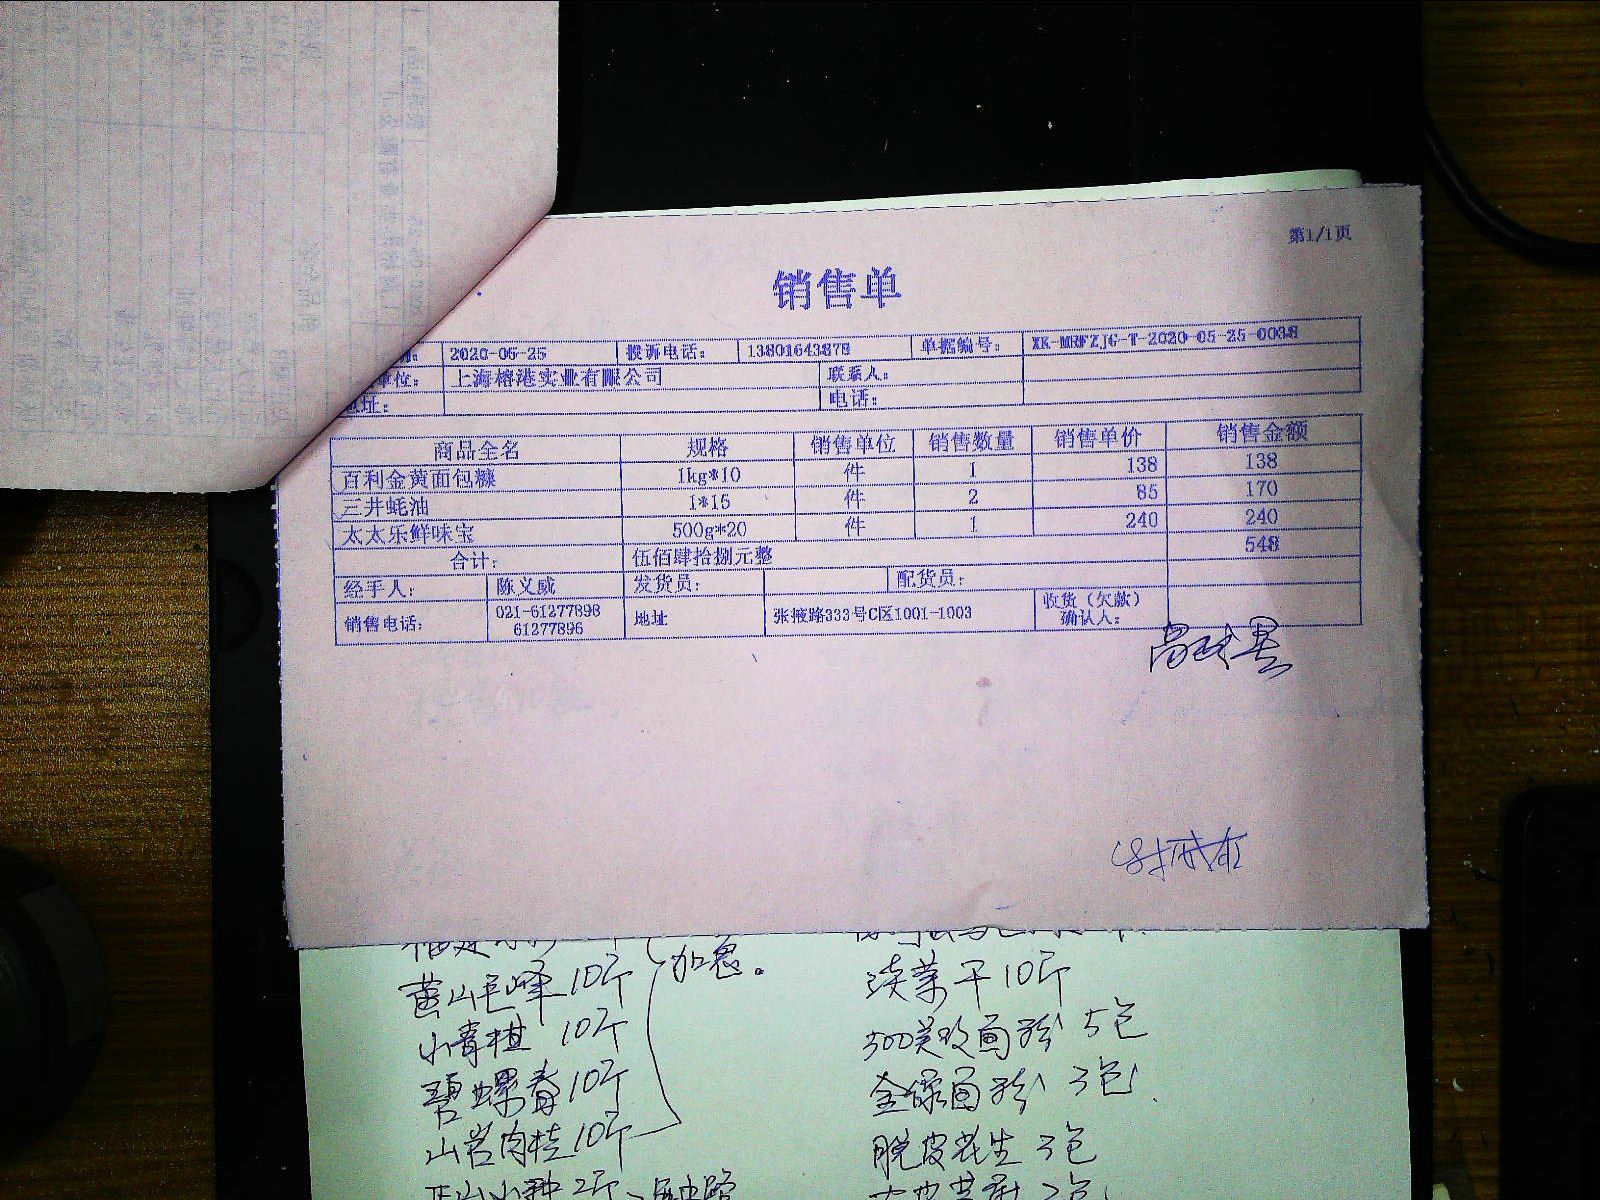 第1/1页
销售单
2020-05-25 投诉电话： 13801643878 单据编号： XK-MRFZJG-T-2020-05-25-0038
单位： 上海榕港实业有限公司 联系人：
地址： 电话：
商品全名 规格 销售单位 销售数量 销售单价 销售金额
百利金黄面包糠 1kg*10 件 1 138 138
三井蚝油 1*15 件 2 85 170
太太乐鲜味宝 500g*20 件 1 240 240
合计： 伍佰肆拾捌元整 548
经手人： 陈义威 发货员： 配货员：
销售电话： 021-61277898 61277896 地址 张掖路333号C区1001-1003 收货（欠款）确认人：
加急。
黄山毛峰 10斤 淡菜干10斤
小青柑 10斤 面粉 5包
碧螺春 10斤 金像面粉 3包
山岩肉桂 10斤 脱皮花生 3包
正山小种 2斤